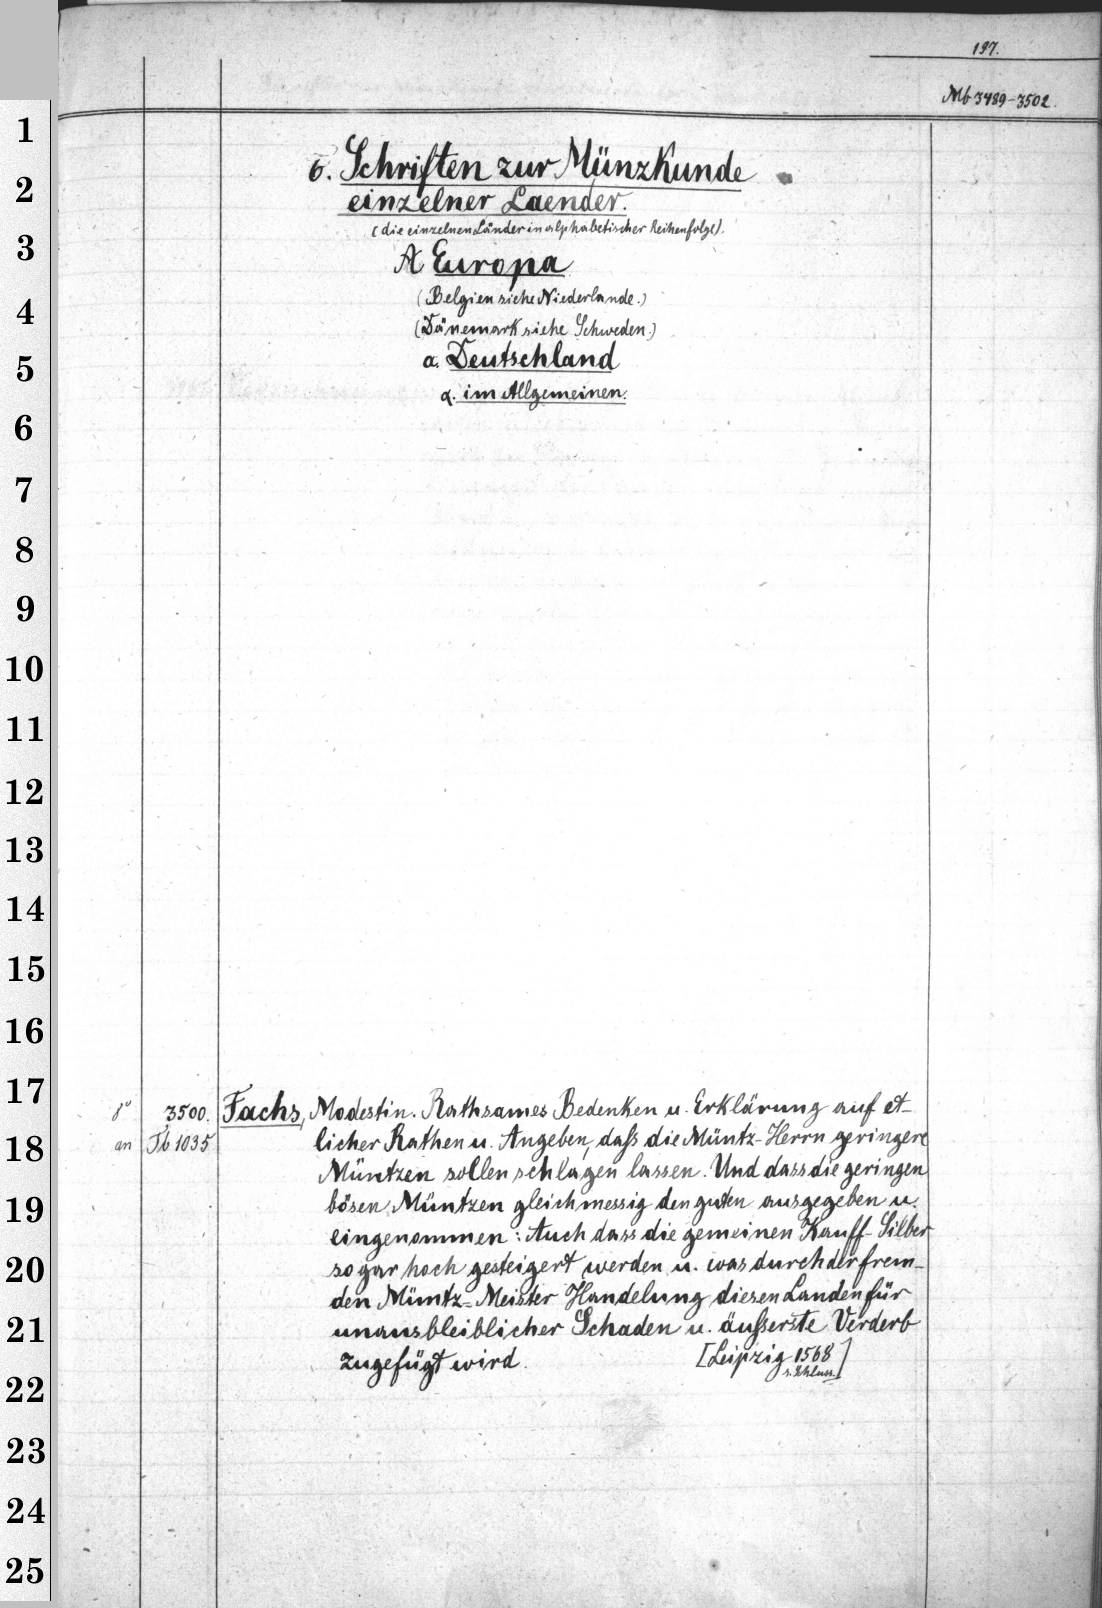 197.
Mb 3489-3502.
6. Schriften zur Münzkunde
einzelner Laender.
(die einzelnen Länder in alphabetischer Reihenfolge).
A Europa
(Belgien siehe Niederlande.)
(Dänemark siehe Schweden.)
a. Deutschland
α. im Allgemeinen.
8º 3500. Fachs, Modestin. Rathsames Bedenken u. Erklärung auf et-
an Tb 1035 licher Rathen u. Angeben, daſs die Müntz-Herrn geringere
Müntzen sollen schlagen lassen. Und dass die geringen
bösen Müntzen gleichmessig den guten ausgegeben u.
eingenommen: Auch dass die gemeinen Kauff-Silber
so gar hoch gesteigert werden u. was durch der frem-
den Müntz-Meister Handelung diesen Landen für
unausbleiblicher Schaden u. äuſserste Verderb
zugefügt wird. [Leipzig 1568]
s. Schluss.
1
2
3
4
5
6
7
8
9
10
11
12
13
14
15
16
17
18
19
20
21
22
23
24
25